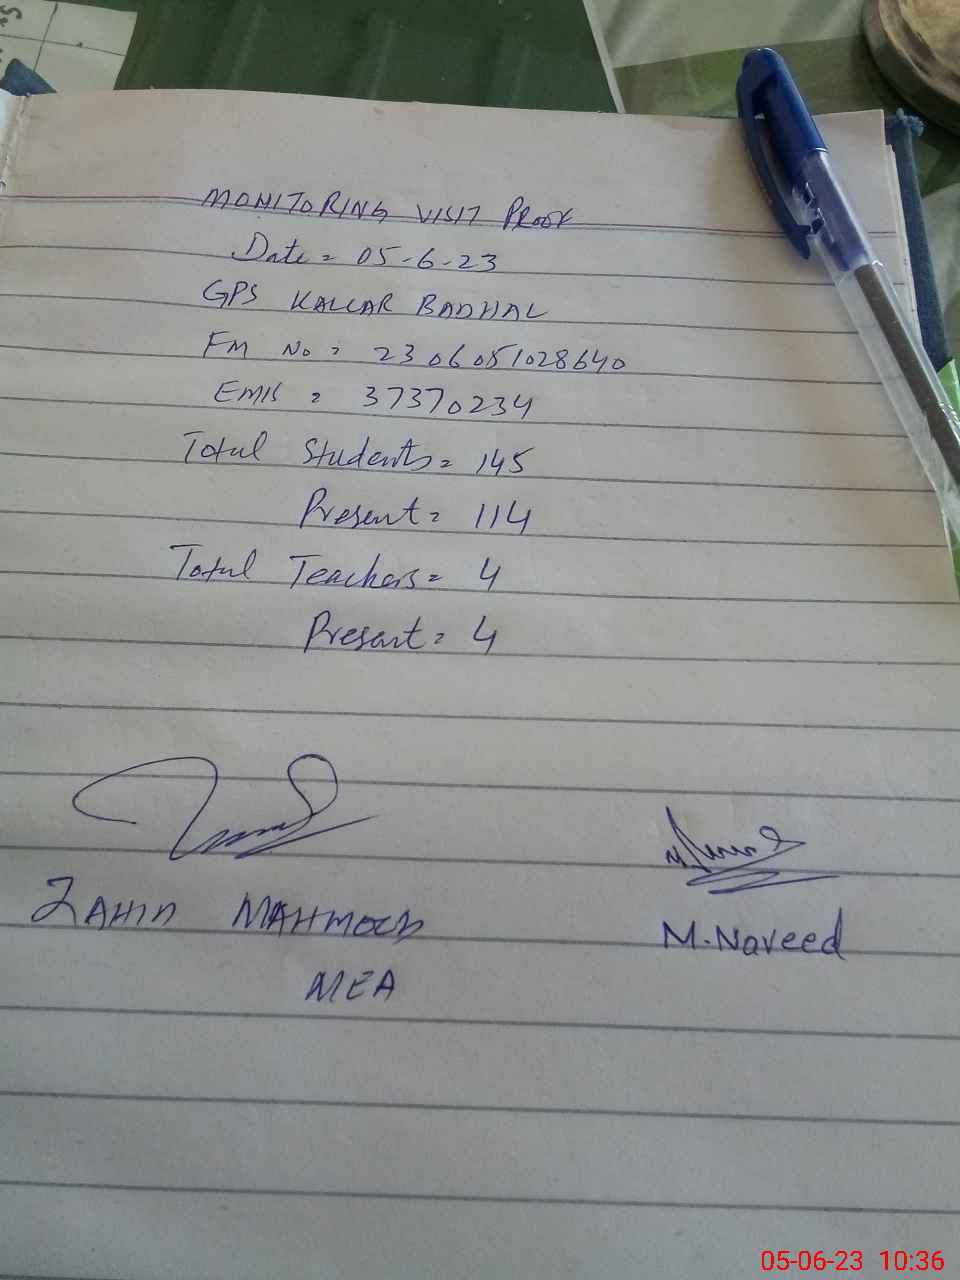 MONITORING VISIT PROOF
Date = 05-6-23
GPS KALLAR BADHAL
FM No = 2306051028640
EMIS = 37370234
Total Students = 145
Present = 114
Total Teachers = 4
Present = 4
ZAHID MAHMOOD
M.Naveed
MEA
05-06-23 10:36